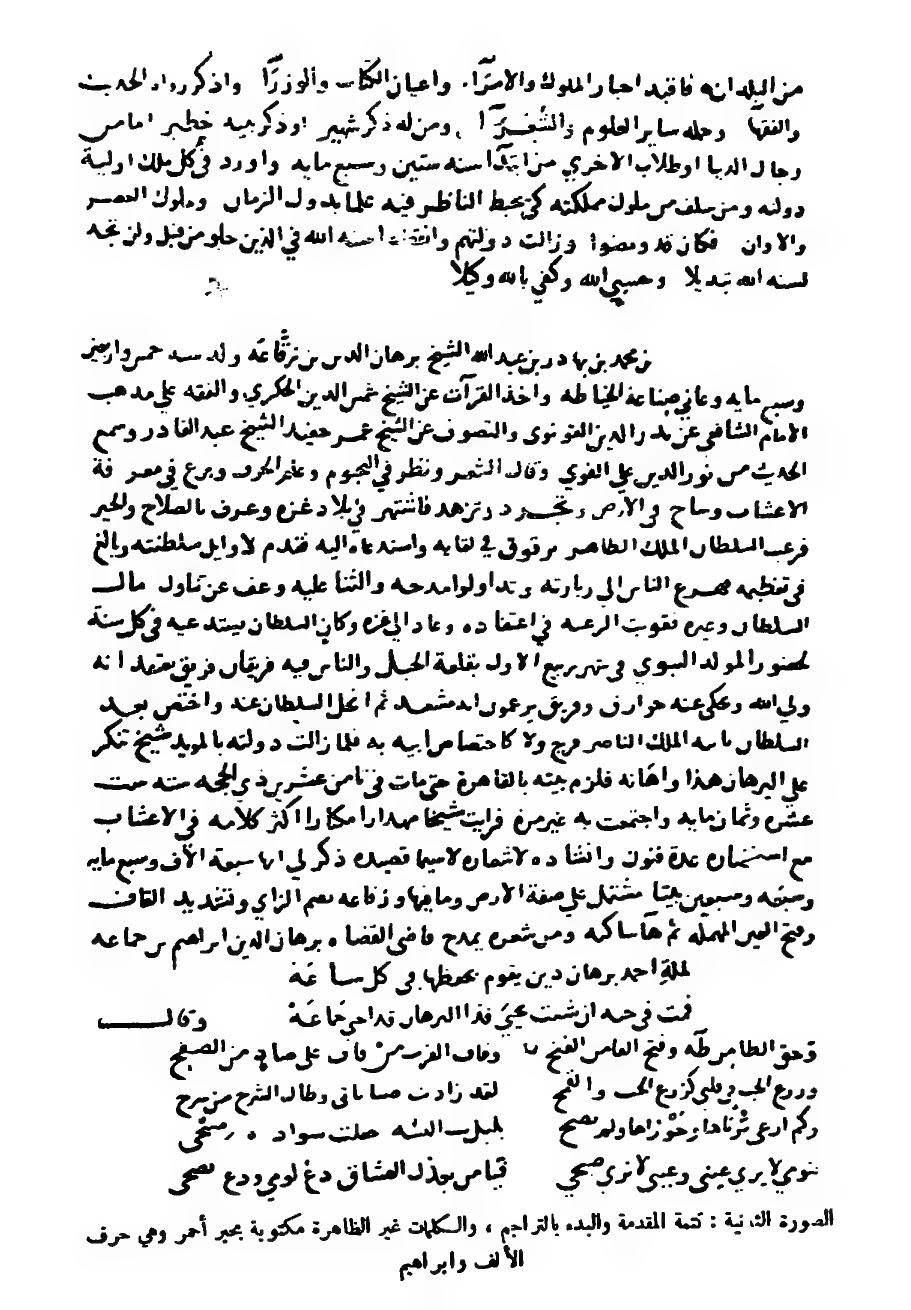 من البلدانه فاقيد اخبار الملوك والامرآء واعيان الكتاب والوزرآ واذكر رواه الحديث
والفقهآ وحمله ساير العلوم والشُعرآ ومن له ذكر شهير اوذكر بنيه خطير امامن
رجال الدنيا اوطلاب الاخري من ابتدآ سنه ستين وسبع مايه واورد في كل ملك اولية
دولته ومن سلف من ملوك مملكته كي يحيط الناظر فيه علما بدول الزمان وملوك العصر
والاوان فكان قد ومضوا وزالت دولتهم وانقضت سنه الله في الذين خلو من قبل ولن تجد
لسنه الله تبديلا وحسبي الله وكفي بالله وكيلا
بن محمد بن بهادر بن عبد الله الشيخ برهان الدين بن زقّاعه ولد سنه خمس واربعين
وسبع مايه وعاني صناعة الخياطه واخذ القرآت عن الشيخ شمس الدين الحكري والفقه علي مذهب
الامام الشافعي عن بدر الدين القونوي والتصوف عن الشيخ عمر حفيد الشيخ عبد القادر وسمع
الحديث من نور الدين علي الفوي وقال الشعر ونظر في النجوم وعلم الحرف وبرع في معرفة
الاعشاب وساح في الارض وتجرد وتزهد فاشتهر في بلاد غزه وعرف بالصلاح والخير
فرغب السلطان الملك الظاهر برقوق في لقايه واستدعاه اليه فقدم لاوايل سلطنته وبالغ
في تعظيمه فهرع الناس الي زيارته وتداولوا مدحه والثنا عليه وعف عن تناول مال
السلطان وغيره فقويت الرغبه في اعتقاده وعاد الي غزه وكان السلطان يستدعيه في كل سنة
لحضور المولد النبوي في شهر ربيع الاول بقلعة الجبل والناس فيه فريقان فريق يعتقد انه
ولي الله ويحكي عنه خوارق وفريق يزعمون انه مشعبد ثم انحل السلطان عنه واختص بعد
السلطان بابنه الملك الناصر فرج ولا كاختصاص ابيه به فلما زالت دولته بالمويد شيخ تنكر
علي البرهان هذا واهانه فلزم بيته بالقاهرة حتي مات في ثامن عشر ذي الحجه سنه ست
عشره وثمان مايه واجتمعت به غير مره فرايت شيخا مهدارا مكثارا اكثر كلامه في الاعشاب
مع استحضاره عدة فنون وانشاده لاشعاره لاسيما قصيده ذكر لي انها سبعة الاف وسبع مايه
وسبعه وسبعين بيتا تشتمل علي صفة الارض وما فيها وزقاعه بضم الزاي وتشديد القاف
وفتح العين المهمله ثم هآ ساكنه ومن شعره يمدح قاضي القضاه برهان الدين ابراهيم بن جماعه
لملة احمد برهان دين يقوم بحفظها في كل ساعَة
فمت في حبه ان شئت تحيَي فذا البرهان قد احيَي جَماعَة وقال
وحق الطاهر طه وفتح الفتح وقاف القرب من قاف علي صاد من الصفح
وزرع الحب في قلبي كزرع الحب والقمح لقد زادت صباباتي وطال الشرح من
وكم ارعي ثريّاها وجَوْزاها ولم تصح
نومي لا يري عيني وعيني لا تري صبحي فيا من يعذل العشاق دع لومي ودع نصحي
الصورة الثانية : تتمة المقدمة والبدء بالتراجم ، والكلمات غير الظاهرة مكتوبة بحبر أحمر وهي حرف
الألف وابراهيم